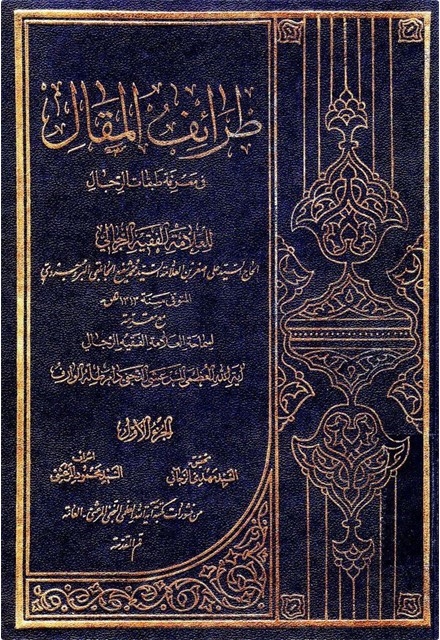 طرائف المقال
في معرفة طبقات الرجال
للعلامة الفقيه الرجالي
الحاج السيد علي أصغر بن العلامة السيد محمد شفيع الجابلقي البروجردي
المتوفى سنة ١٣١٣ هـ
مع مقدمة
لسماحة العلامة الفقيه الرجالي
آية الله العظمى السيد المرعشي النجفي دام ظله الوارف
الجزء الأول
تحقيق
السيد مهدي الرجائي
اشراف
السيد محمود المرعشي
من منشورات مكتبة آية الله العظمى النجفي المرعشي - العامة
قم المقدسة